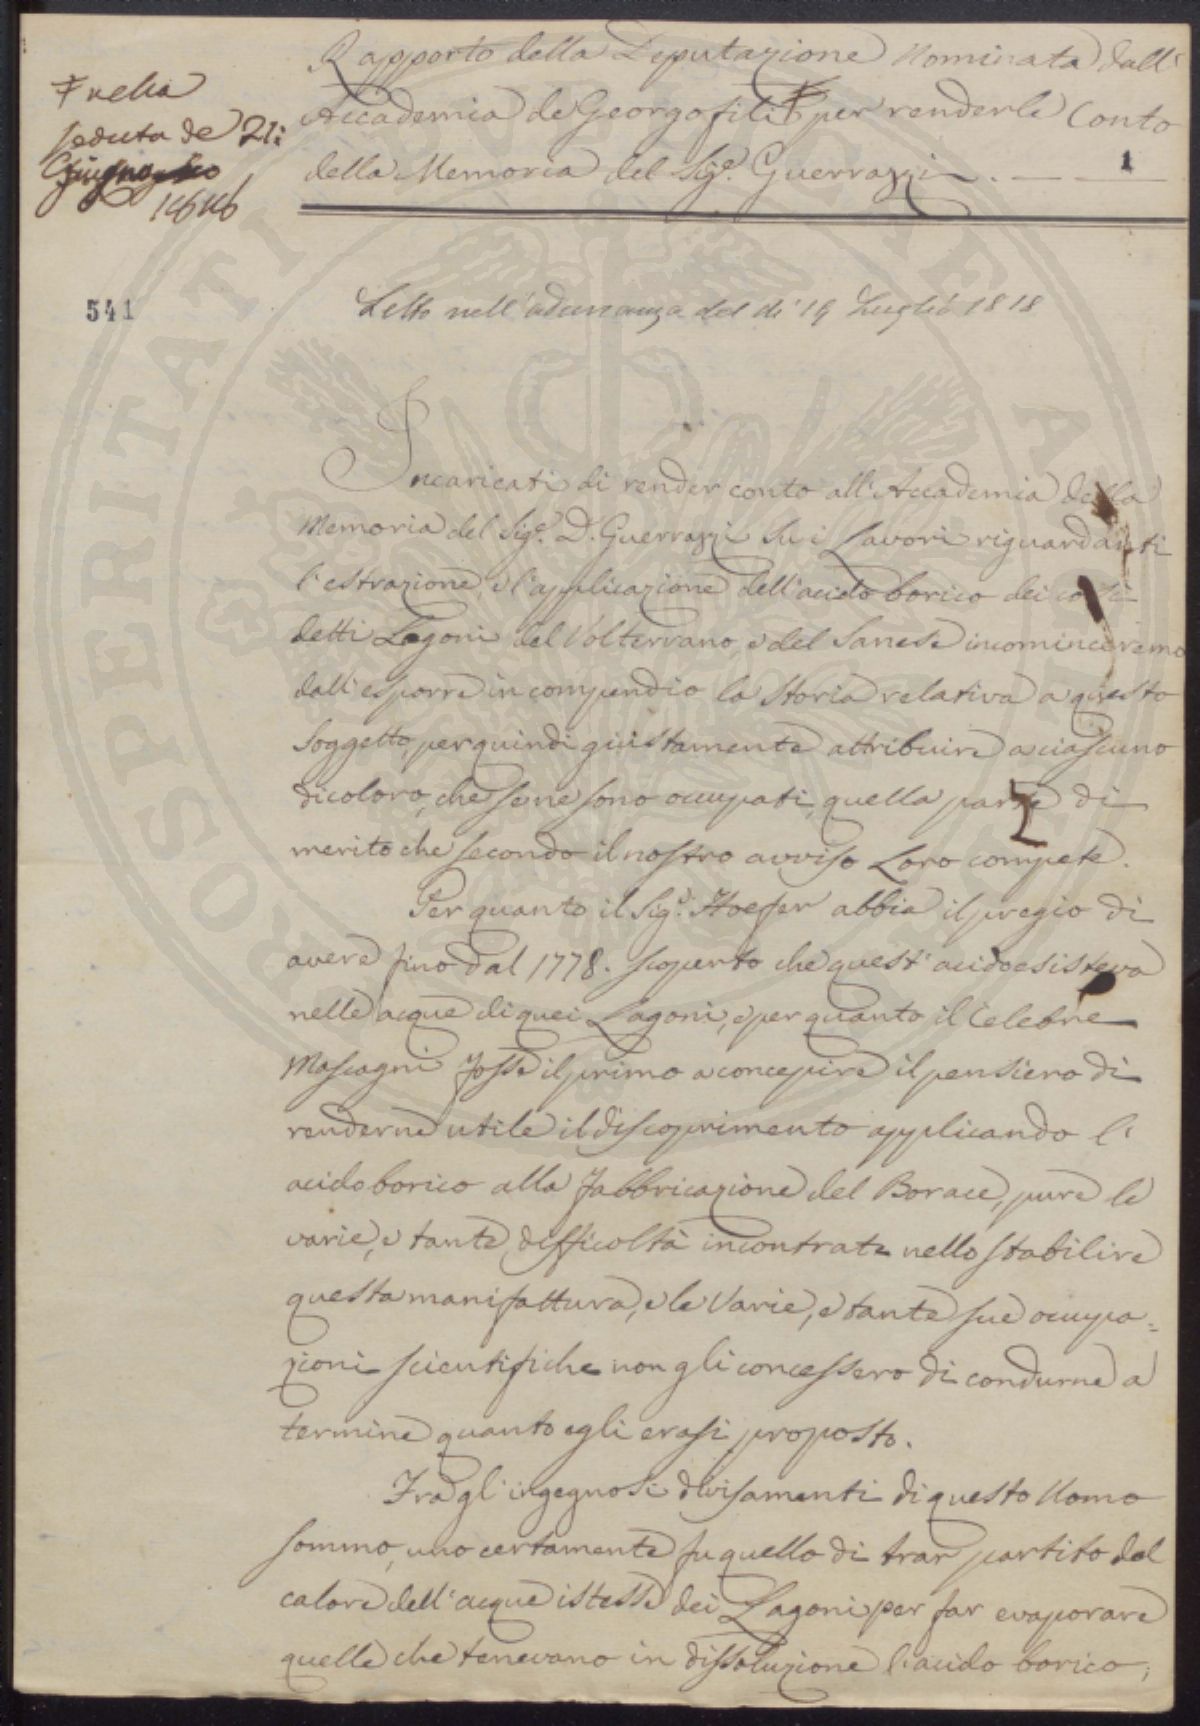 Rapporto della Deputazione Nominata dall'
Accademia de Georgofili ŧ per renderle Conto
della Memoria del Sig.e Guerrazzi. — 1
ŧ nella
seduta de 21:
Giugno
1818
541
Letto nell'adunanza del dì 19 Luglio 1818
Incaricati di render conto all'Accademia della
Memoria del Sig.e D. Guerrazzi su i Lavori riguardanti
l'estrazione, e l'applicazione dell'acido borico dei così
detti Lagoni del Volterrano, e del Sanese incominceremo
dall'esporre in compendio la Storia relativa a questo
soggetto, per quindi giustamente attribuire a ciascuno
di coloro, che se ne sono occupati, quella parte di
merito che secondo il nostro avviso Loro compete.
Per quanto il Sig.r Hoefer abbia il pregio di
avere fino dal 1778. scoperto che quest'acido esisteva
nelle acque di quei Lagoni, e per quanto il Celebre
Mascagni fosse il primo a concepire il pensiero di
renderne utile il discoprimento applicando l'
acido borico alla fabbricazione del Borace, pure le
varie, e tante difficoltà incontrate nello stabilire
questa manifattura, e le Varie, e tante sue occupa=
zioni scientifiche non gli concessero di condurne a
termine quanto egli erasi proposto.
Fra gl'ingegnosi divisamenti di questo Uomo
sommo, uno certamente fu quello di trar partito dal
calore dell'acque istesse dei Lagoni per far evaporare
quelle che tenevano in dissoluzione l'acido borico;
OSPERITATI